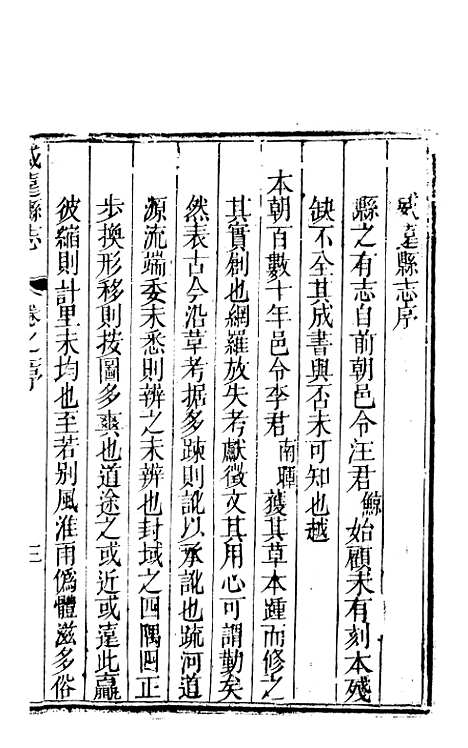 武臺縣志序
縣之有志自前朝邑令汪君鯨始顧未有刻本殘
缺不全其成書與否未可知也越
本朝百數十年邑令李君南暉獲其草本踵而修之
其實創也網羅放失考獻徵文其用心可謂勤矣
然表古今沿革考据多踈則訛以承訛也疏河道
源流端委未悉則辨之未辨也封域之四隅四正
步換形移則按圖多爽也道途之或近或遠此贏
彼縮則計里未均也至若別風淮雨僞體滋多俗
縣志
卷之序
三